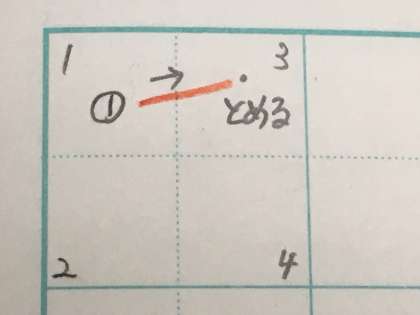 1 3
① → とめる
2 4